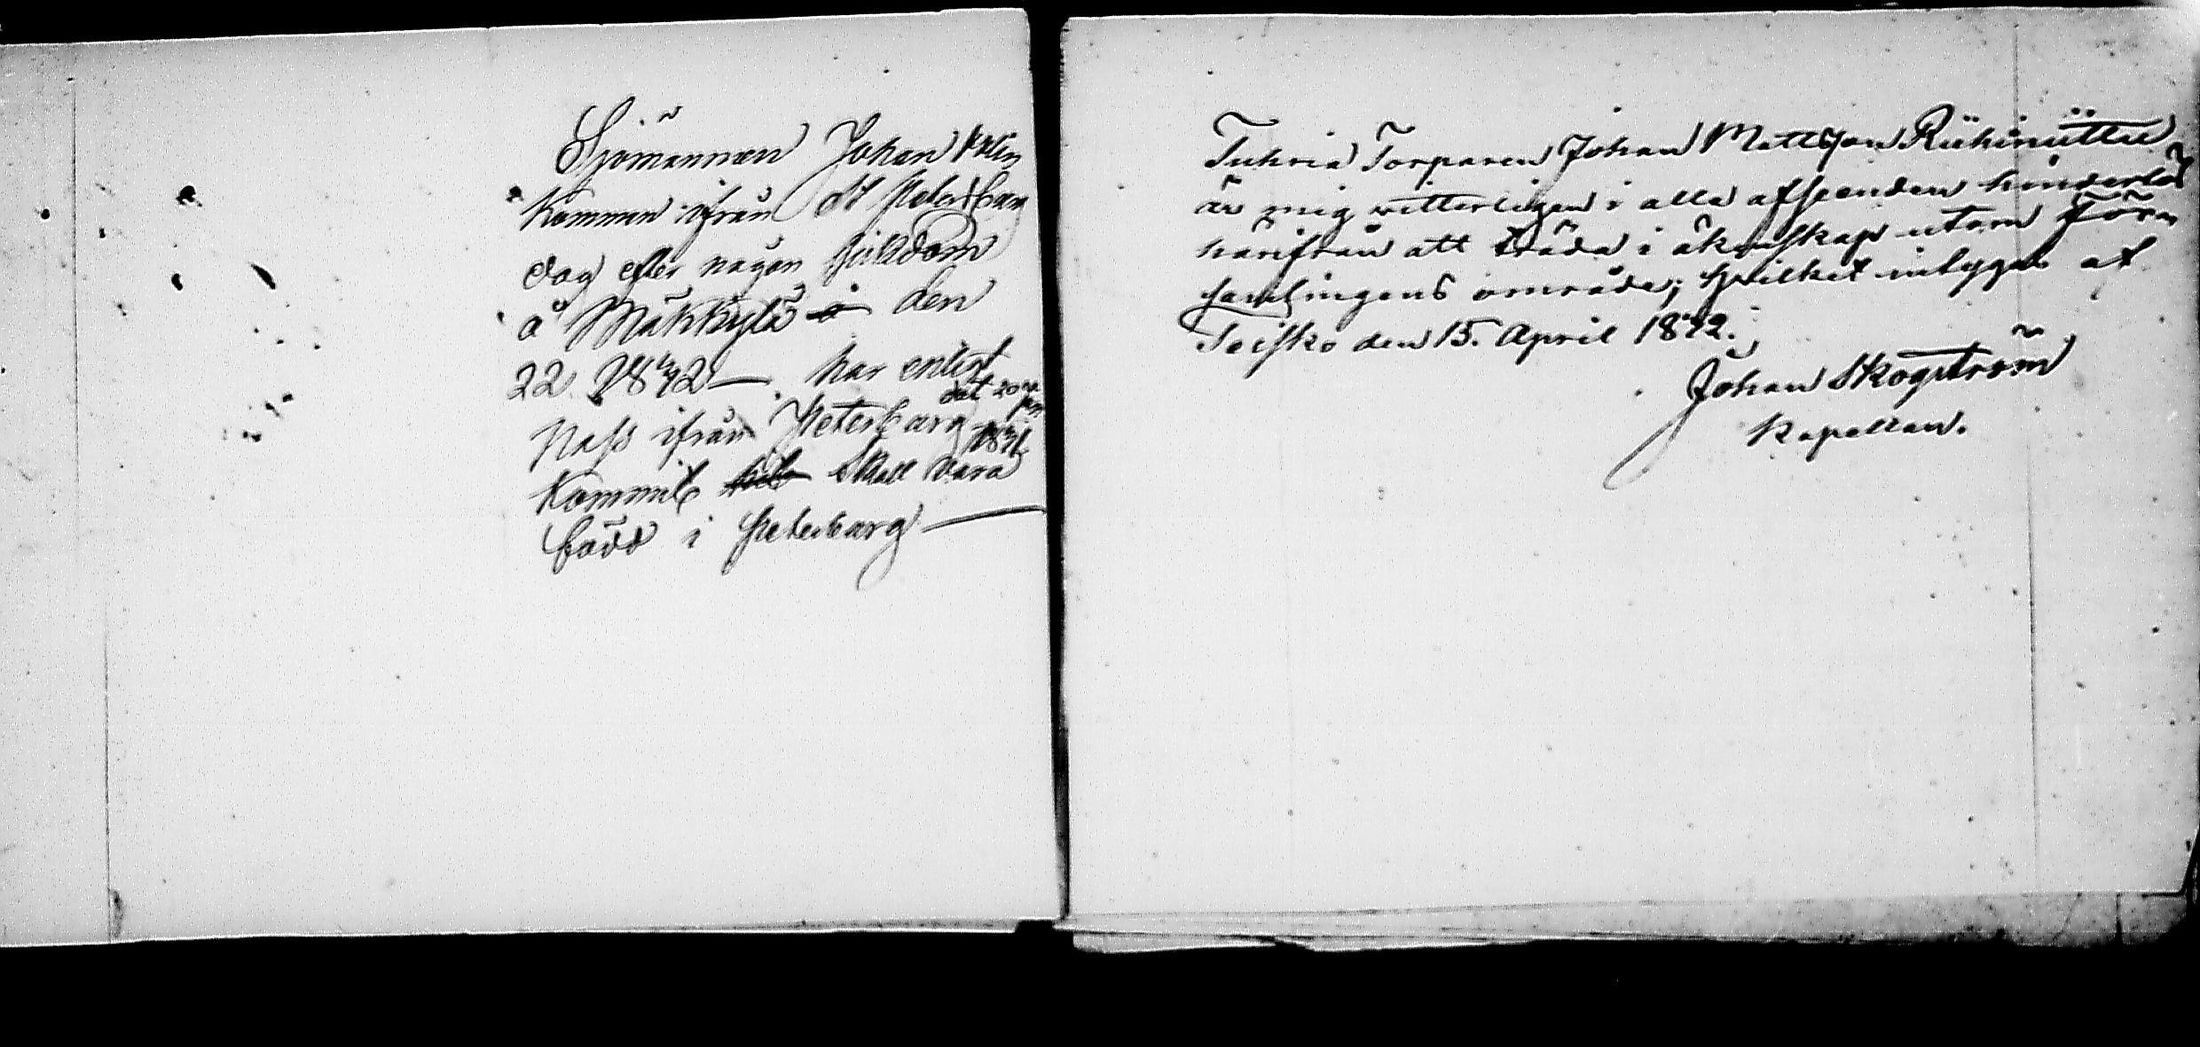 Sjömannen Johan
Kommen ifrån St Petersburg
dog efter någon sjukdom
å Mäkkylä den
22 1842 — har enligt
Pass ifrån Peterburg dat 20
Kommit skall vara
född i Peterburg —
Enkria Torparen Johan Mattsson Riihiniittu
är mig vitterligen i alla afseenden hinderlös
härifrån att träda i äkenskap utom förs
samlingens område; hvilket intygas af
Teisko den 15. April 1842.
Johan Skogström
Kapellan.